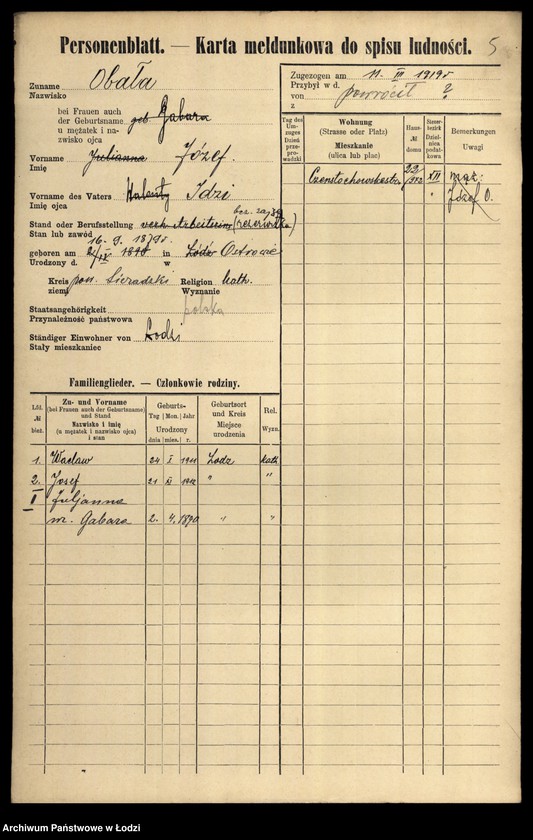 Personenblatt. — Karta meldunkowa do spisu ludności.
5
Zuname Obała
Nazwisko
bei Frauen auch
der Geburtsname geb Gabara
u mężatek i na-
zwisko ojca
Vorname Julianna Józef.
Imię
Vorname des Vaters Walenty Idzi
Imię ojca
Stand oder Berufsstellung Arbeiterin (rezerwistka)
Stan lub zawód
16. 9. 1879r.
geboren am 1890 in Łódź Ostrowie
Urodzony d. w
Kreis pow. Sieradzki Religion kath.
ziemi Wyznanie
Staatsangehörigkeit polska
Przynależność państwowa
Ständiger Einwohner von Łodzi
Stały mieszkaniec
Familienglieder. — Członkowie rodziny.
Lfd. № bież.
Zu- und Vorname
(bei Frauen auch der Geburtsname)
und Stand
Nazwisko i imię
(u mężatek i nazwisko ojca)
i stan
Geburts-
Tag Mon. Jahr
Urodzony
dnia mies. r.
Geburtsort
und Kreis
Miejsce
urodzenia
Rel.
Wyzn.
1. Wacław 24 X 1911 Lodz kath
2. Josef 21 XI 1912 " "
I Juljanna
m. Gabara 2. 4. 1890 " "
Zugezogen am 11. III 1919r
Przybył w d.
von powrócił ?
z
Tag des
Um-
zuges
Dzień
prze-
prowadzki
Wohnung
(Strasse oder Platz)
Mieszkanie
(ulica lub plac)
Haus-
№
domu
Steuer-
bezirk
Dzielnica
podatkowa
Bemerkungen
Uwagi
Czenstochowskastr. XII mąż:
" Józef O.
Archiwum Państwowe w Łodzi